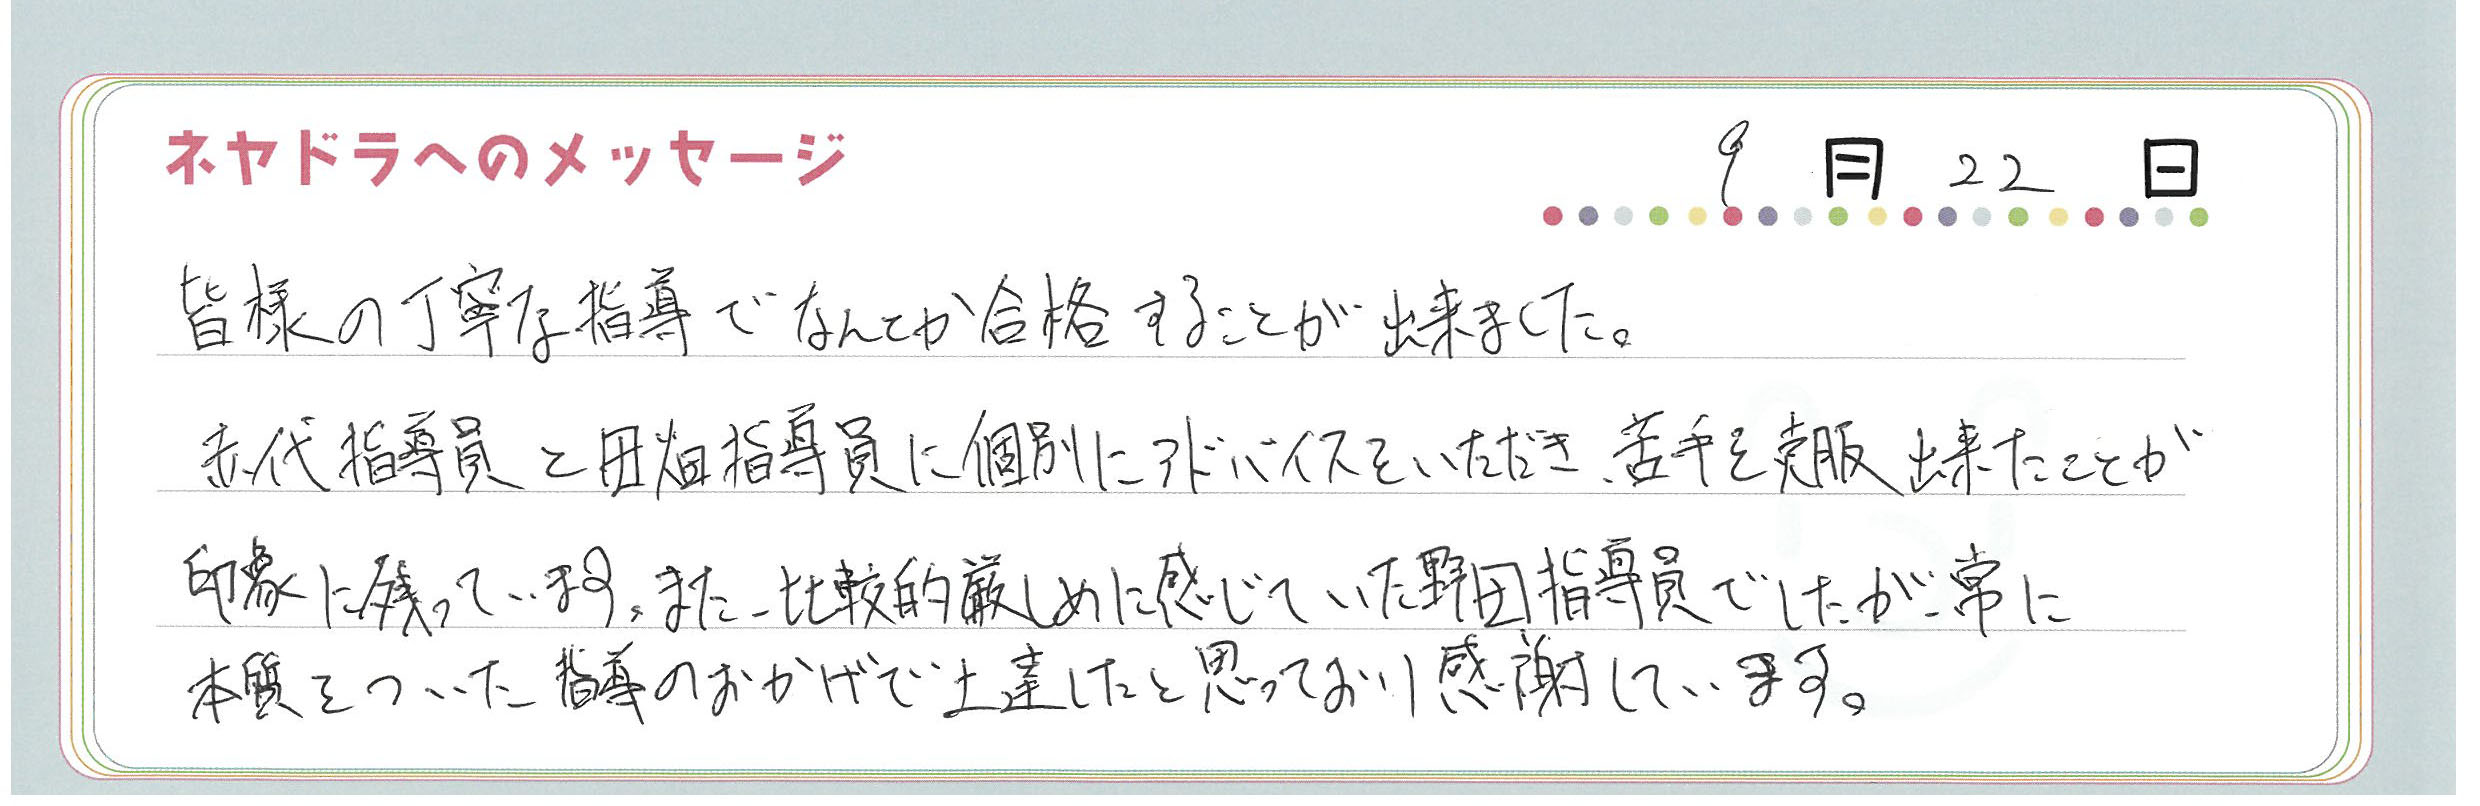 ネヤドラへのメッセージ
9月22日
皆様の丁寧な指導でなんとか合格することが出来ました。
赤代指導員と田畑指導員に個別にアドバイスをいただき、苦手を克服出来たことが
印象に残っています。また、比較的厳しめに感じていた野田指導員でしたが、常に
本質をついた指導のおかげで上達したと思っており感謝しています。